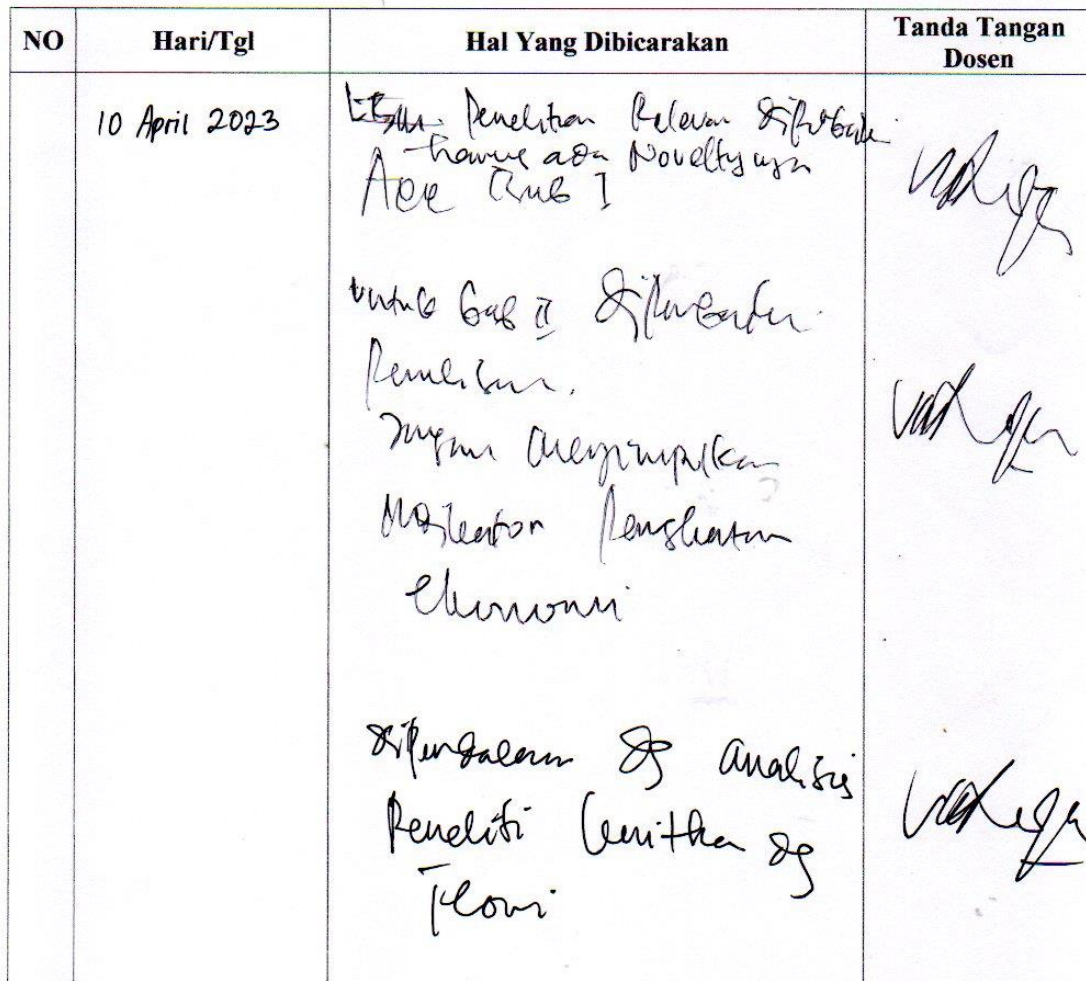 NO Hari/Tgl Hal Yang Dibicarakan Tanda Tangan Dosen
10 April 2023
Penelitian Relevan diperbaiki
harus ada Noveltynya
Acc Bab I
untuk bab II
Penulisan.
dengan menyimpulkan
Indikator Peningkatan
ekonomi
diperdalam dg analisis
Peneliti dg
Teori